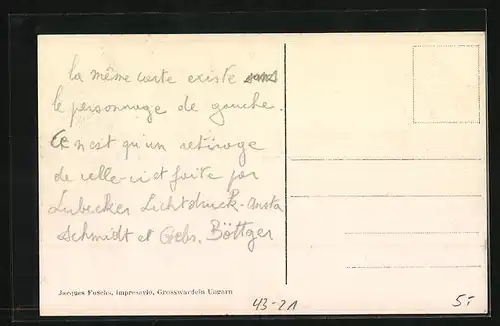 la même carte existe sans
le personnage de gauche.
Ce n'est qu'un retirage
de celle-ci et faite par
Lubecker Lichtdruck-Ansta
Schmidt et Gebr. Böttger
Jacques Fuschs, impresario, Grosswardein Ungarn
43-21
5.-